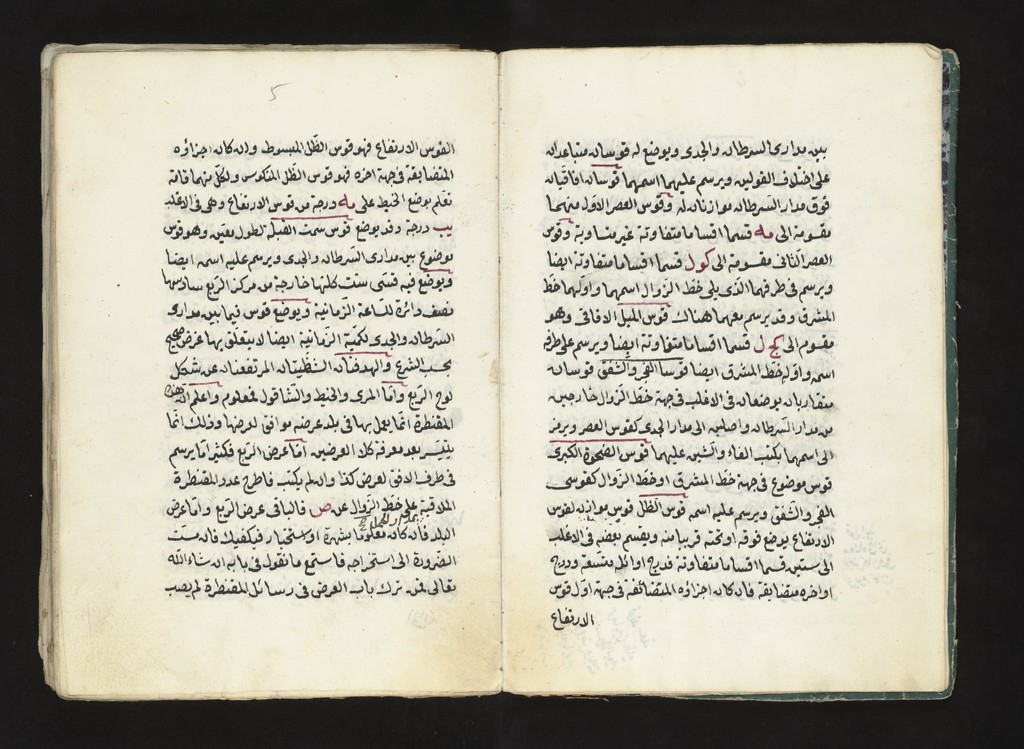 بين مداري السرطان والجدى ويوضع له قوسان متباعدان
على اختلاف القولين ويرسم عليهما اسمهما قوسان افاقيان
فوق مدار السرطان موازنان له وقوس العصر الاول منهما
مقسومة الى مه قسما اقساما متفاوتة غير متساوية وقوس
العصر الثانى مقسومة الى كول قسما اقساما متفاوتة ايضا
ويرسم فى طرفهما الذى يلى خط الزوال اسمهما واولهما خط
المشرق وقد يرسم معهما هناك قوس الميل الافاقى وهو
مقسوم الى كج ل قسما اقساما متفاوتة ايضا ويرسم على طرفه
اسمه واوله خط المشرق ايضا قوسا الفجر والشفق قوسان
متقاربان يوضعان فى الاغلب فى جهة خط الزوال خارجين
من مدار السرطان واصلين الى مدار الجدى كقوس العصر ويرمز
الى اسمهما بكتب الفاء والشين عليهما قوس الضحوة الكبرى
قوس موضوع فى جهة خط المشرق او خط الزوال كقوسى
الفجر والشفق ويرسم عليه اسمه قوس الظل قوس موازنه لقوس
الارتفاع يوضع فوقه او تحته قريبا منه ويقسم بعضه فى الاغلب
الى ستين قسما اقساما متفاوتة تدريج اوائله متسعة ودرج
اواخره متضايقة فان كان اجزاؤه المتضائقة فى جهة اول قوس
الارتفاع
5
القوس الارتفاع فهو قوس الظل المبسوط وان كان اجزاؤه
المتضايقة فى جهة اخره فهو قوس الظل المنكوس ولكل منهما قامة
تعلم بوضع الخيط على مه درجة من قوس الارتفاع وهى فى الاغلب
يب درجة وقد يوضع قوس سمت القبلة لطول معين وهو قوس
موضوع بين مدارى السرطان والجدى ويرسم عليه اسمه ايضا
ويوضع فيه قسى ست كلها خارجة من مركز الربع سادسها
نصف دائرة للساعة الزمانية ويوضع قوس فيما بين مدارى
السرطان والجدى لكمية الزمانية ايضا لا يتعلق بها غرض صحيح
بحسب الشرع والهدفتان الشظيتان المرتفعتان عن شكل
لوح الربع واما المرى والخيط والشاقول فمعلوم واعلم ان هذه
المقنطرة انما يعمل بها فى بلد عرضه موافق لعرضها وذلك انما
يتيسر بعد معرفة كلا العرضين اما عرض الربع فكثيرا ما يرسم
فى طرف الافق لعرض كذا وان لم يكتب فاطرح عدد المقنطرة
الملاقية على خط الزوال عن ص فالباقى عرض الربع واما عرض
بمدار الحمل صح
البلد فان كان معلوما بشهرة او استخبار فيكفيك فان مست
الضرورة الى استخراجه فاستمع ما نقول فى بابه ان شاء الله
تعالى فمن ترك باب العرض فى رسائل المقنطرة لم يصب